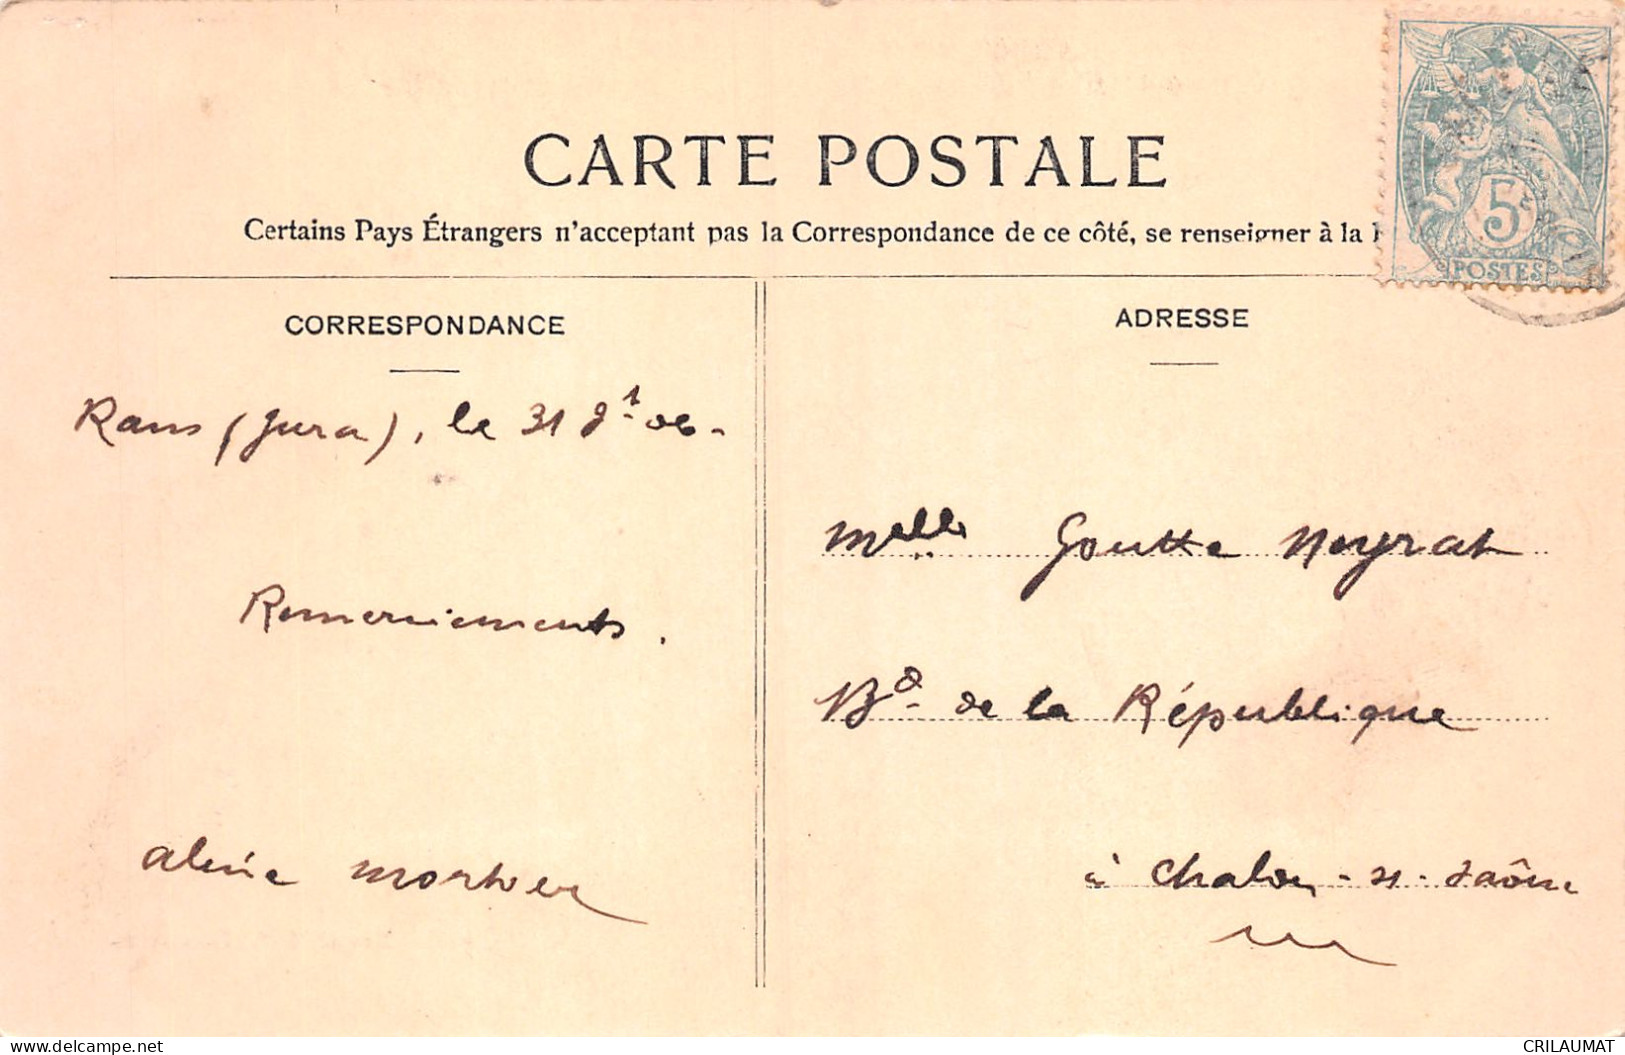 CARTE POSTALE
Certains Pays Étrangers n'acceptant pas la Correspondance de ce côté, se renseigner à la
CORRESPONDANCE
Rans (Jura), le 31 Jt 06.
Remerciements.
Mortier
ADRESSE
Melle Goutte Neyrat
Bd. de la République
à Chalon-s-Saône
5
POSTES
delcampe.net
CRILAUMAT